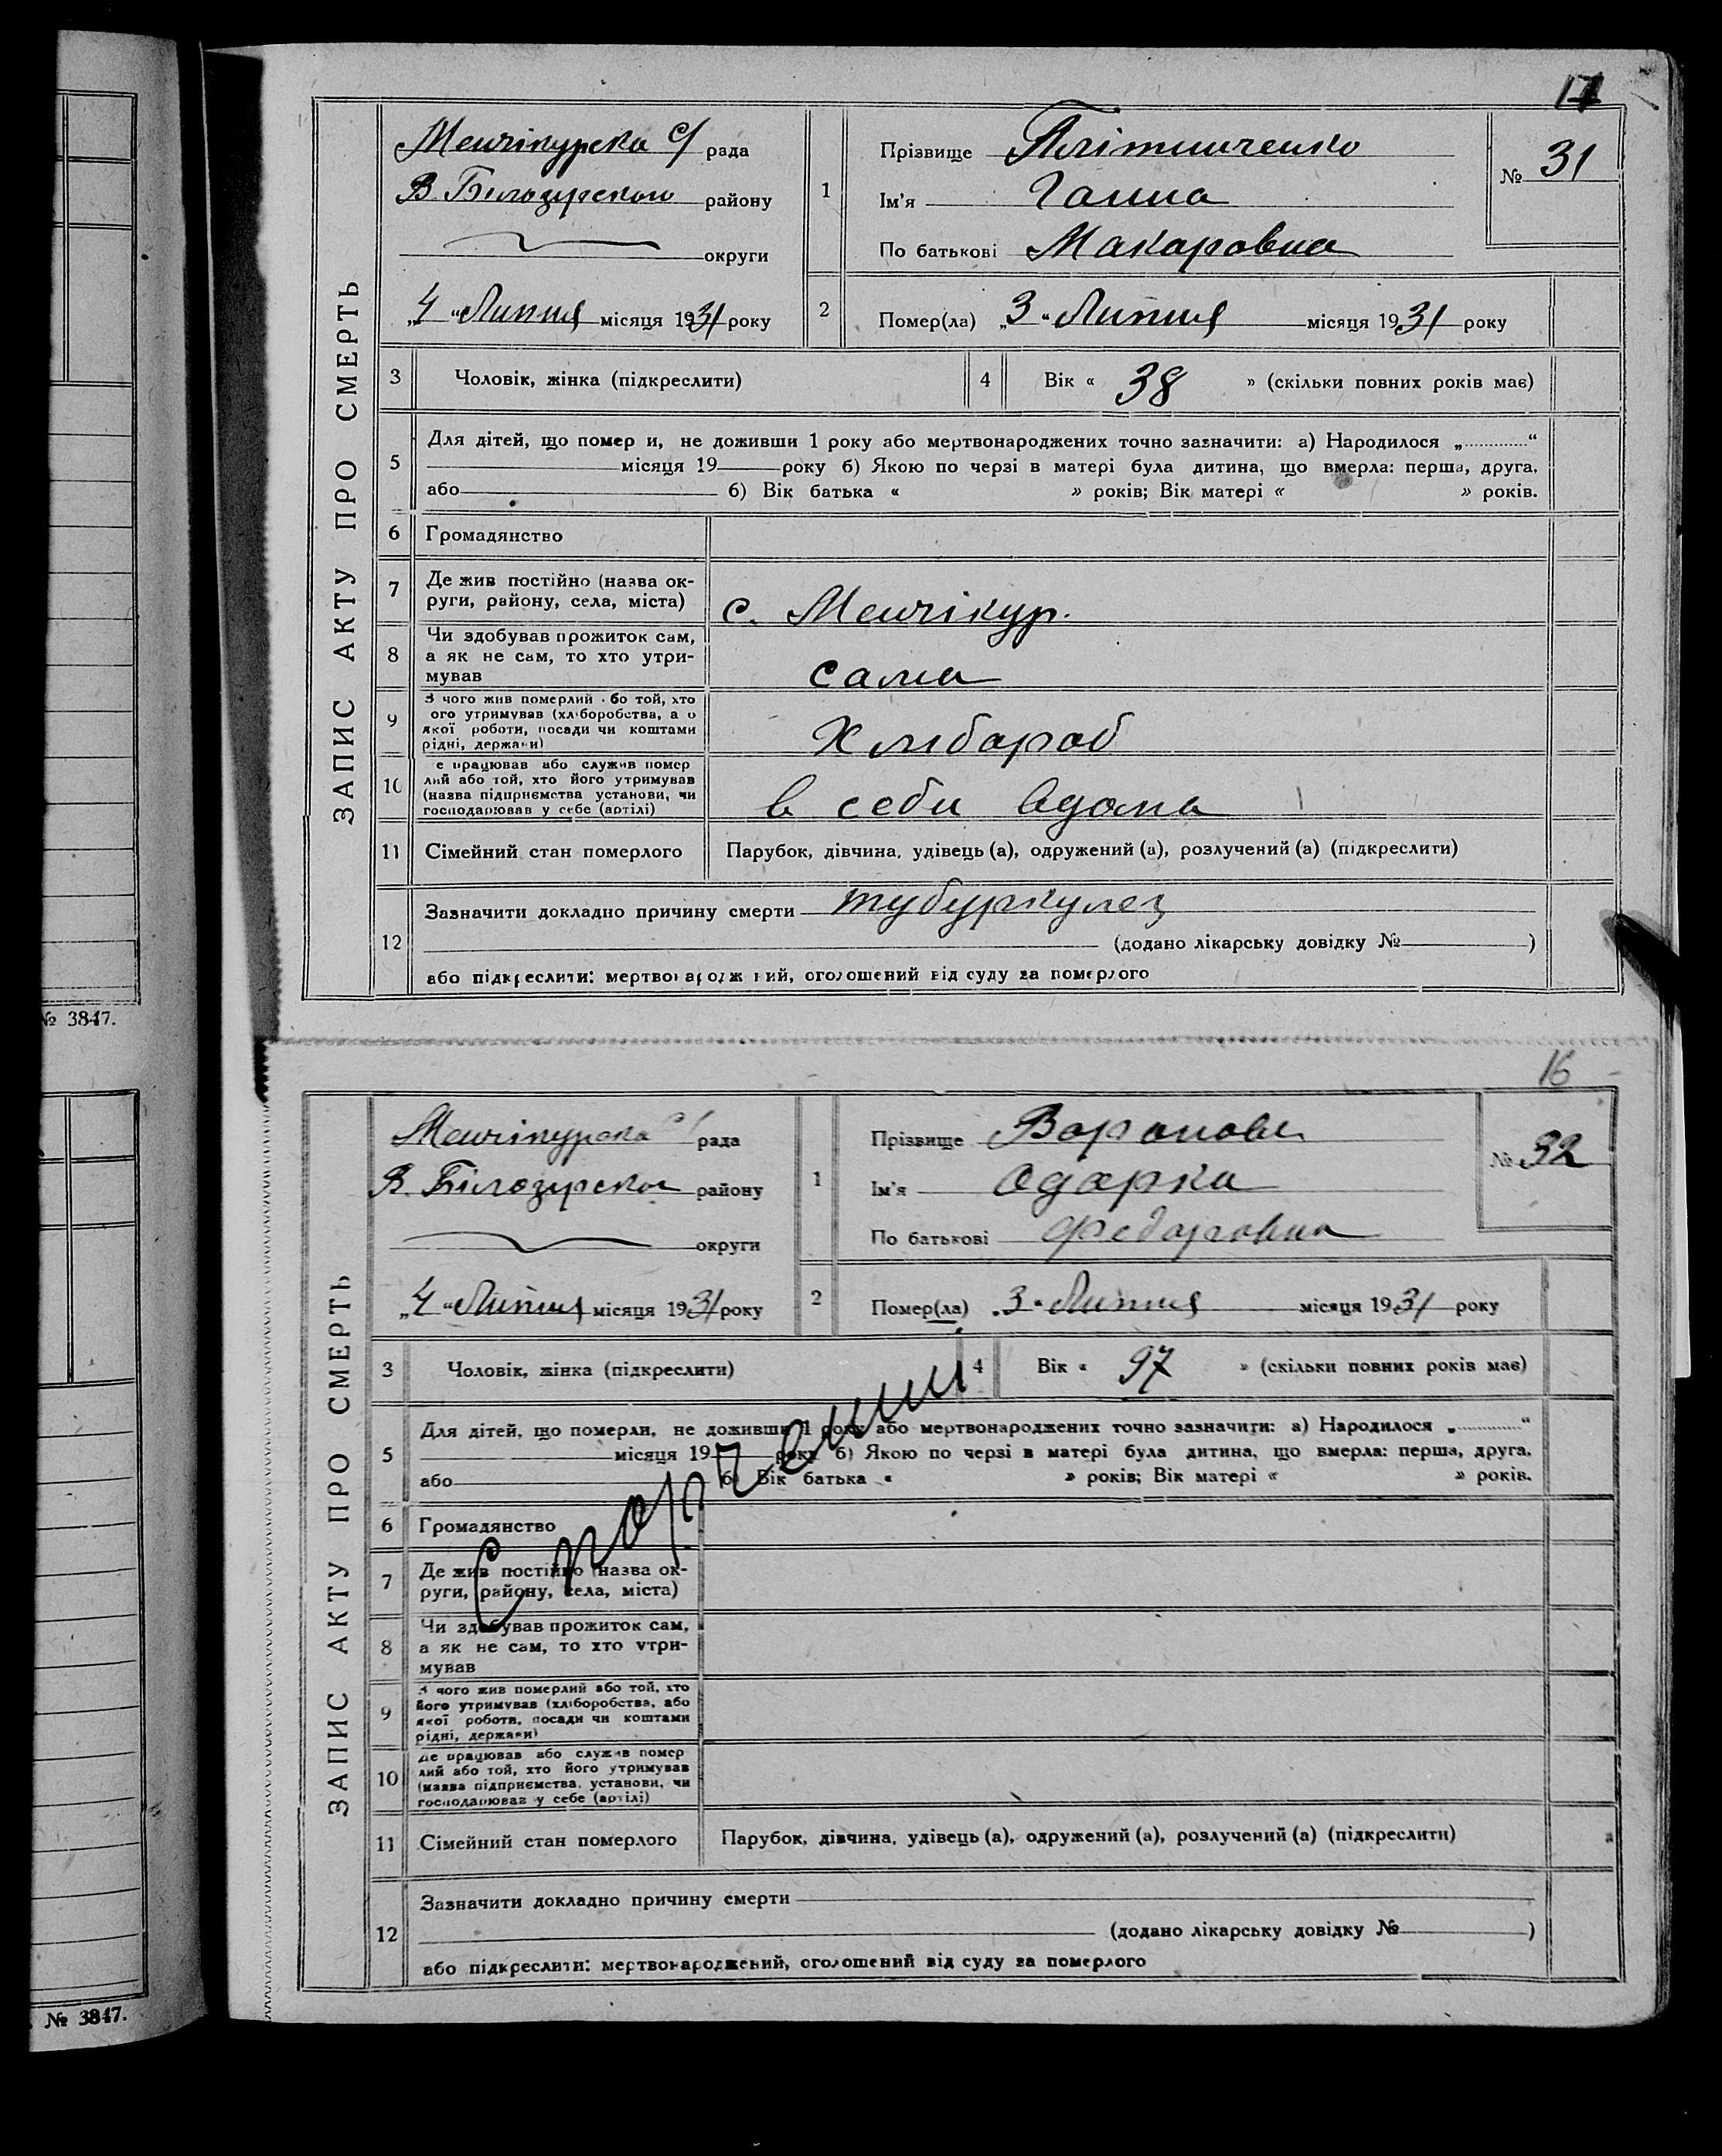 17
ЗАПИС АКТУ ПРО СМЕРТЬ
Менчікурска с/ рада
В. Білозирского району
округи
„4“ Липня місяця 1931 року
1
Прізвище Плітинченко
Ім'я Ганна
По батькові Макаровна
№ 31
2
Помер(ла) „3“ Липня місяця 1931 року
3 Чоловік, жінка (підкреслити)
4 Вік « 38 » (скільки повних років має)
5
Для дітей, що померли, не доживши 1 року або мертвонароджених точно зазначити: а) Народилося „ “
місяця 19 року б) Якою по черзі в матері була дитина, що вмерла: перша, друга,
або б) Вік батька « » років; Вік матері « » років.
6 Громадянство
7
Де жив постійно (назва ок-
руги, району, села, міста)
с. Менчікур.
8
Чи здобував прожиток сам,
а як не сам, то хто утри-
мував
сама
9
З чого жив померлий або той, хто
його утримував (хліборобства, або
якої роботи, посади чи коштами
рідні, держави)
Хлібароб
10
Де працював або служив помер
лий або той, хто його утримував
(назва підприємства установи, чи
господарював у себе (артілі)
в себи вдома
11 Сімейний стан померлого
Парубок, дівчина, удівець (а), одружений (а), розлучений (а) (підкреслити)
12
Зазначити докладно причину смерти тубуркулез
(додано лікарську довідку № )
або підкреслити: мертвонароджений, оголошений від суду за померлого
№ 3847.
16
ЗАПИС АКТУ ПРО СМЕРТЬ
Менчікурска с/ рада
В. Білозирског району
округи
„4“ Липня місяця 1931 року
1
Прізвище Варанова
Ім'я Одарка
По батькові Федаравна
№ 32
2
Помер(ла) „3“ Липня місяця 1931 року
3 Чоловік, жінка (підкреслити)
4 Вік « 97 » (скільки повних років має)
5
Для дітей, що померли, не доживши 1 року або мертвонароджених точно зазначити: а) Народилося „ “
місяця 19 року б) Якою по черзі в матері була дитина, що вмерла: перша, друга,
або б) Вік батька « » років; Вік матері « » років.
6 Громадянство
7
Де жив постійно (назва ок-
руги, району, села, міста)
8
Чи здобував прожиток сам,
а як не сам, то хто утри-
мував
9
З чого жив померлий або той, хто
його утримував (хліборобства, або
якої роботи, посади чи коштами
рідні, держави)
10
Де працював або служив помер
лий або той, хто його утримував
(назва підприємства, установи, чи
господарював у себе (артілі)
11 Сімейний стан померлого
Парубок, дівчина, удівець (а), одружений (а), розлучений (а) (підкреслити)
12
Зазначити докладно причину смерти
(додано лікарську довідку № )
або підкреслити: мертвонароджений, оголошений від суду за померлого
№ 3847.